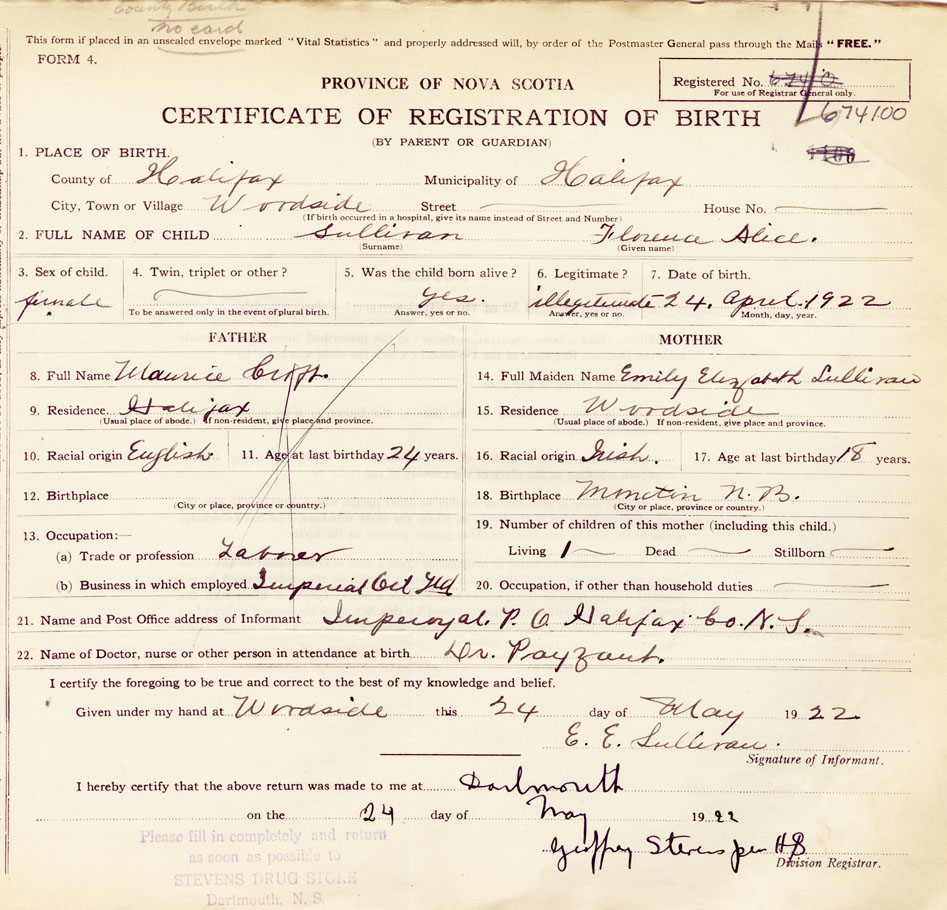 County Birth
no card
This form if placed in an unsealed envelope marked "Vital Statistics" and properly addressed will, by order of the Postmaster General pass through the Mails "FREE."
FORM 4.
PROVINCE OF NOVA SCOTIA
Registered No.
For use of Registrar General only.
674100
CERTIFICATE OF REGISTRATION OF BIRTH
(BY PARENT OR GUARDIAN)
1. PLACE OF BIRTH.
County of Halifax Municipality of Halifax
City, Town or Village Woodside Street House No.
(If birth occurred in a hospital, give its name instead of Street and Number)
2. FULL NAME OF CHILD Sullivan Florence Alice.
(Surname) (Given name)
3. Sex of child. 4. Twin, triplet or other? 5. Was the child born alive? 6. Legitimate? 7. Date of birth.
female yes. illegitimate 24. April. 1922
To be answered only in the event of plural birth. Answer, yes or no. Answer, yes or no. Month, day, year.
FATHER MOTHER
8. Full Name Maurice Croft. 14. Full Maiden Name Emily Elizabeth Sullivan
9. Residence. Halifax 15. Residence Woodside
(Usual place of abode.) If non-resident, give place and province. (Usual place of abode.) If non-resident, give place and province.
10. Racial origin English 11. Age at last birthday 24 years. 16. Racial origin Irish. 17. Age at last birthday 18 years.
12. Birthplace 18. Birthplace Moncton N.B.
(City or place, province or country.) (City or place, province or country.)
13. Occupation:— 19. Number of children of this mother (including this child.)
(a) Trade or profession Laborer Living 1 Dead Stillborn
(b) Business in which employed Imperial Oil Ltd 20. Occupation, if other than household duties
21. Name and Post Office address of Informant Imperoyal. P. O. Halifax Co. N. S.
22. Name of Doctor, nurse or other person in attendance at birth Dr. Payzant.
I certify the foregoing to be true and correct to the best of my knowledge and belief.
Given under my hand at Woodside this 24 day of May 1922
E. E. Sullivan.
Signature of Informant.
I hereby certify that the above return was made to me at Dartmouth
on the 24 day of May 1922
Geoffrey Stevens per HB
Division Registrar.
Please fill in completely and return
as soon as possible to
STEVENS DRUG STORE
Dartmouth, N. S.